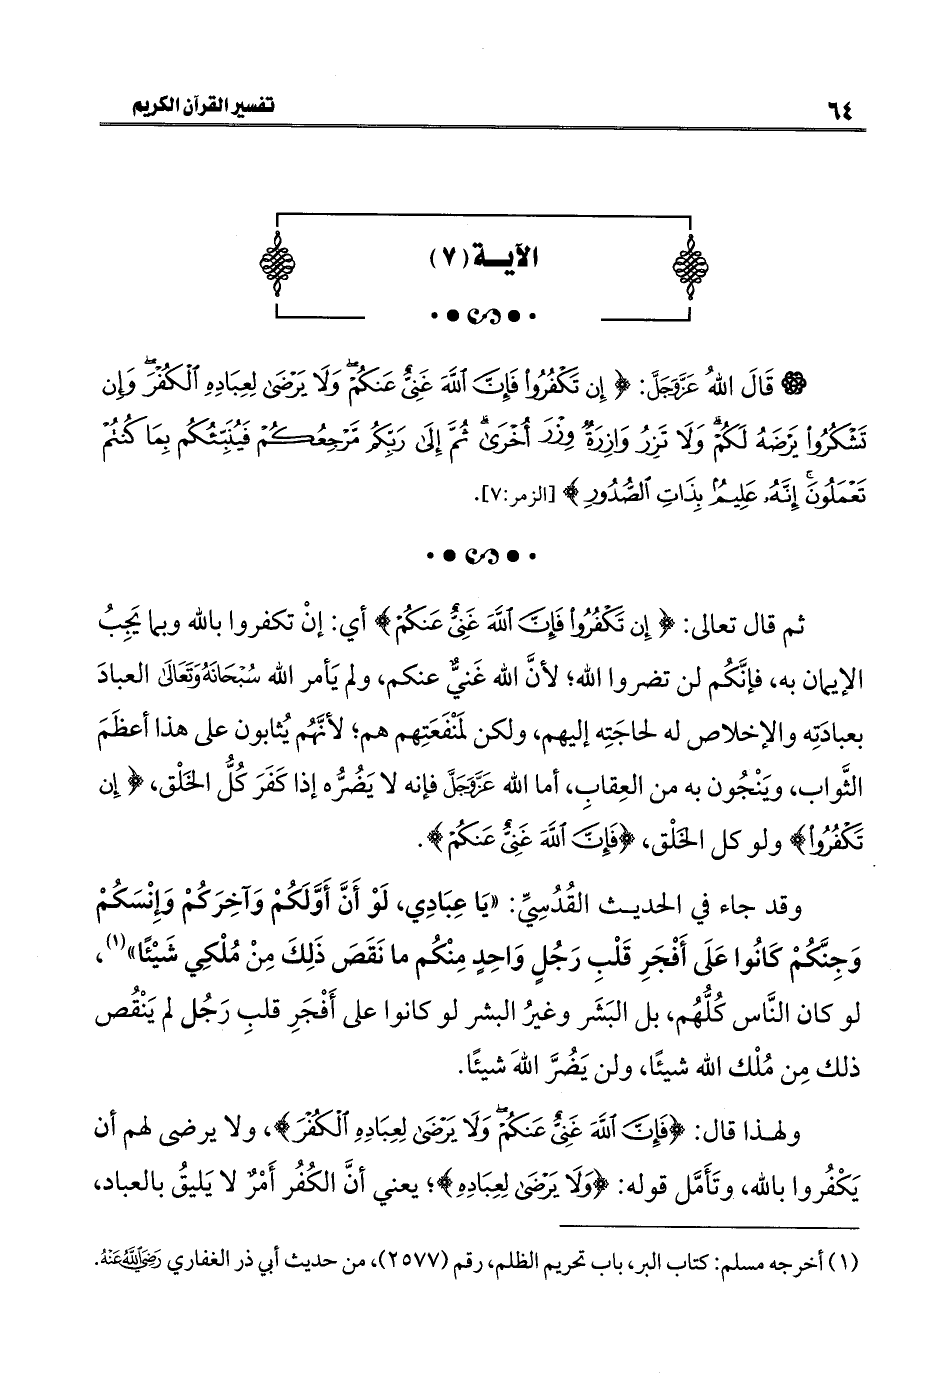 ٦٤
تفسير القرآن الكريم
الآيــة (٧)
قَالَ اللهُ عَزَّوَجَلَّ: ﴿ إِن تَكْفُرُوا۟ فَإِنَّ ٱللَّهَ غَنِىٌّ عَنكُمْ ۖ وَلَا يَرْضَىٰ لِعِبَادِهِ ٱلْكُفْرَ ۖ وَإِن
تَشْكُرُوا۟ يَرْضَهُ لَكُمْ ۗ وَلَا تَزِرُ وَازِرَةٌ وِزْرَ أُخْرَىٰ ۗ ثُمَّ إِلَىٰ رَبِّكُم مَّرْجِعُكُمْ فَيُنَبِّئُكُم بِمَا كُنتُمْ
تَعْمَلُونَ ۚ إِنَّهُۥ عَلِيمٌۢ بِذَاتِ ٱلصُّدُورِ ﴾ [الزمر:٧].
ثم قال تعالى: ﴿ إِن تَكْفُرُوا۟ فَإِنَّ ٱللَّهَ غَنِىٌّ عَنكُمْ ﴾ أي: إنْ تكفروا بالله وبما يَجِبُ
الإيمان به، فإنَّكُم لن تضروا الله؛ لأنَّ الله غَنيٌّ عنكم، ولم يَأمر الله سُبْحَانَهُ وَتَعَالَىٰ العبادَ
بعبادَتِه والإخلاص له لحاجَتِه إليهم، ولكن لمَنْفَعَتِهم هم؛ لأنَّهُم يُثابون على هذا أعظَمَ
الثَّواب، ويَنْجُون به من العِقابِ، أما الله عَزَّوَجَلَّ فإنه لا يَضُرُّه إذا كَفَرَ كُلُّ الخَلْق، ﴿ إِن
تَكْفُرُوا۟ ﴾ ولو كل الخَلْق، ﴿فَإِنَّ ٱللَّهَ غَنِىٌّ عَنكُمْ ﴾.
وقد جاء في الحديث القُدُسِيِّ: «يَا عِبَادِي، لَوْ أَنَّ أَوَّلَكُمْ وَآخِرَكُمْ وَإِنْسَكُمْ
وَجِنَّكُمْ كَانُوا عَلَى أَفْجَرِ قَلْبِ رَجُلٍ وَاحِدٍ مِنْكُم ما نَقَصَ ذَلِكَ مِنْ مُلْكِي شَيْئًا»(١)،
لو كان النَّاس كُلُّهُم، بل البَشَر وغيرُ البشر لو كانوا على أَفْجَرِ قلبِ رَجُل لم يَنْقُص
ذلك مِن مُلْك الله شيئًا، ولن يَضُرَّ اللهَ شيئًا.
ولهـذا قال: ﴿فَإِنَّ ٱللَّهَ غَنِىٌّ عَنكُمْ ۖ وَلَا يَرْضَىٰ لِعِبَادِهِ ٱلْكُفْرَ ﴾، ولا يرضى لهم أن
يَكْفُروا بالله، وتَأَمَّل قوله: ﴿وَلَا يَرْضَىٰ لِعِبَادِهِ ﴾؛ يعني أنَّ الكُفْر أَمْرٌ لا يَليقُ بالعباد،
(١) أخرجه مسلم: كتاب البر، باب تحريم الظلم، رقم (٢٥٧٧)، من حديث أبي ذر الغفاري رَضِيَ اللَّهُ عَنْهُ.